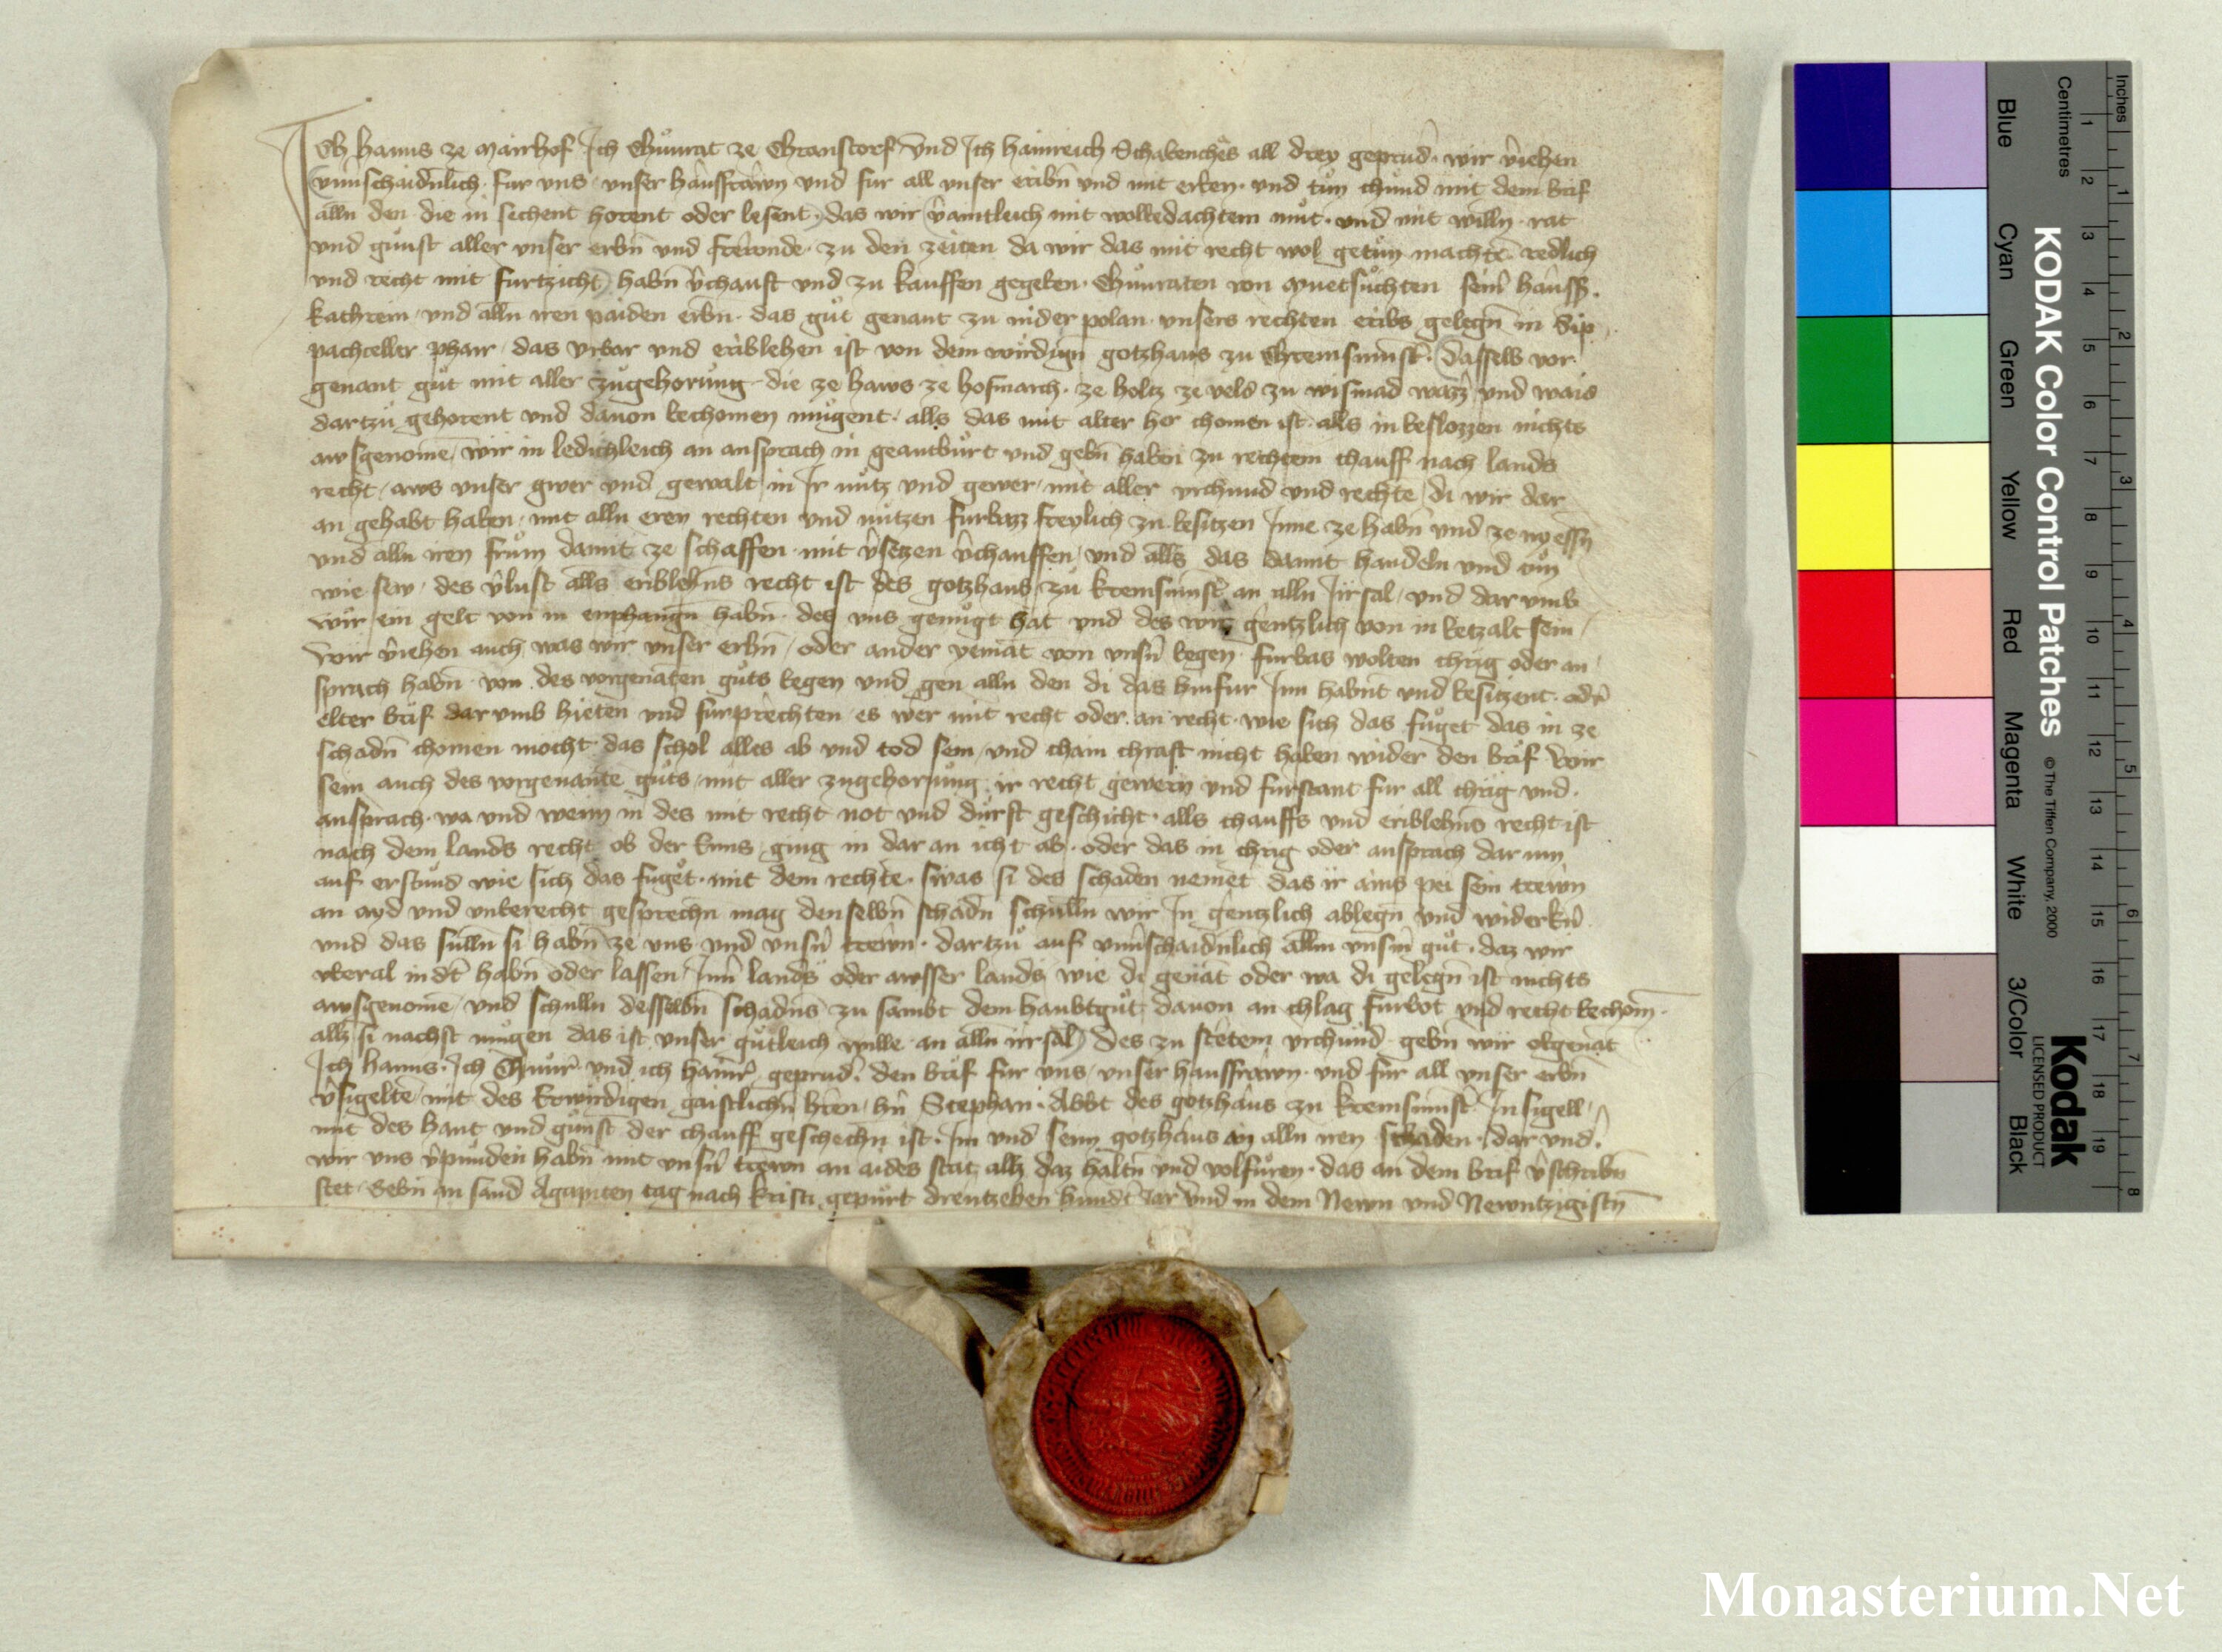 Ich Hanns ze Mairhof Ich Chunrat ze Chranstorf und Ich Hainreich all drey geprud wir v̂iehen
unv̂schaidnlich fur uns unser hausfrawn und fur all unser eribn und mit erben und tun chund mit dem brif
alln den die in sechent horent oder lesent das wir v̂aintleich mit wolbedachtem mut und mit willn rat
und gunst aller unser erbn und frewnde zu den zeiten da wir das mit recht wol getun machtn redlich
und recht mit furtzicht habn v̂chauft und zu kauffen gegeben Chunraten von seinr hausfr
kathrein und alln iren paiden erbn das gut genant zu nider polan unsers rechten eribs gelegn in Sip
pacheller pharr das urbar und eriblehen ist von dem wirdign gotzhaus zu Chremsmunstr Dasselb vor
genant gut mit aller zugehorung die ze haws ze hofmarch ze holtz ze veld zu wismad wazz und waid
dartzu gehorent und dauon bechomen mugent alls das mit alter her chomen ist alls in beslozzen nichts
awsgenome wir in ledichleich an ansprach in geantburt und gebn haben zu rechtem chauff nach lands
recht aws unser gwer und gewalt in Ir nutz und gewer mit aller urchund und rechte di wir dar
an gehabt haben mit alln eren rechten und nutzen furbazz freylich zu besitzen Inne ze habn und ze nyessn
und alln iren frum damit ze schaffen mit v̂setzen v̂chauffen und alls das damit handeln und tun
wie sew des v̂lust alls eriblehns recht ist des gotzhaus zu kremsmunstr an alln Irrsal und dar umb
wir ein gelt von in enphangn habn des uns genugt hat und des wir gentzlich von in betzalt sein
wir v̂iehen auch was wir unser erbn oder ander yemat von unsn begen furbas wolten chrig oder an
sprach habn von des vorgenaten guts begen und gen alln den di das hinfur Inn habnt und besitzent odr
elter brif darumb hieten und furprechten es wer mit recht oder an recht wie sich das fuget das in ze
schadn chomen mocht das schol alles ab und tod sein und chain chraft nicht haben wider den brif Wir
sein auch des vorgenante guts mit aller zugehorung ir recht gewern und furstant fur all chrig und
ansprach wa und wenn in des mit recht not und durft geschicht alls chauffs und eriblehns recht ist
nach dem lands recht ob der Enns ging in dar an icht ab oder das in chrig oder ansprach dar inn
auf erstund wie sich das fuget mit dem rechte swas si des schaden nemet das ir ains pei sein trewn
an ayd und unberecht gesprechn mag denselbn schadn schulln wir In gentzlich ablegn und widerkern
und das sulln si habn ze uns und unsn trewn dartzu auf unv̂schaidnlich alln unsm gut daz wir
uberal indt habn oder lassen Inn lands oder awsser lands wie di genat oder wa di gelegn ist nichts
awsgenome und schulln desselbn schadns zu sambt dem haubtgut dauon an chlag furbot und recht bechom
allz si nachst mugen das ist unser gutleich wille an alln irrsal Des zu stetem urchund gebn wir obgenat
Ich Hanns Ich Chunr und ich Hainr geprud den brif fur uns unser hausfrawn und fur all unser erbn
v̂sigelte mit des Erwirdigen gaistlichn hren hn Stephan Abbt des gotzhaus zu kremsmunstr Insigell
mit des hant und gunst der chauff geschechn ist Im und seim gotzhaus an alln iren schaden dar undr
wir uns v̂punden habn mit unsn trewn an aides stat allz daz haltn und volfuren das an dem brif v̂schribn
stet Gebn an sand Agapiten tag nach kristi gepurt drewtzehen hundt Iar und in dem Newn und Newntzigistn
KODAK Color Control Patches
© The Tiffen Company, 2000
Kodak
LICENSED PRODUCT
Blue
Cyan
Green
Yellow
Red
Magenta
White
3/Color
Black
Centimetres
1
2
3
4
5
6
7
8
9
10
11
12
13
14
15
16
17
18
19
Inches
1
2
3
4
5
6
7
8
Monasterium.Net